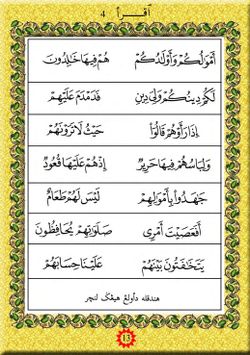 اقرأ 4
أَمْوَٰلُكُمْ وَأَوْلَٰدُكُمْ هُمْ فِيهَا خَٰلِدُونَ
لَكُمْ دِينُكُمْ وَلِيَ دِينِ فَدَمْدَمَ عَلَيْهِمْ
إِذَا رَأَوْهُمْ قَالُوٓا۟ حَيْثُ لَا تَرَوْنَهُمْ
وَلِبَاسُهُمْ فِيهَا حَرِيرٌ إِذْ هُمْ عَلَيْهَا قُعُودٌ
جَٰهَدُوا۟ بِأَمْوَٰلِهِمْ لَيْسَ لَهُمْ طَعَامٌ
أَفَعَصَيْتَ أَمْرِى صَلَاتِهِمْ يُحَافِظُونَ
يَتَخَٰفَتُونَ بَيْنَهُمْ عَلَيْنَا حِسَابَهُمْ
هندقله داولڠ هيڠݢ لنچر
13